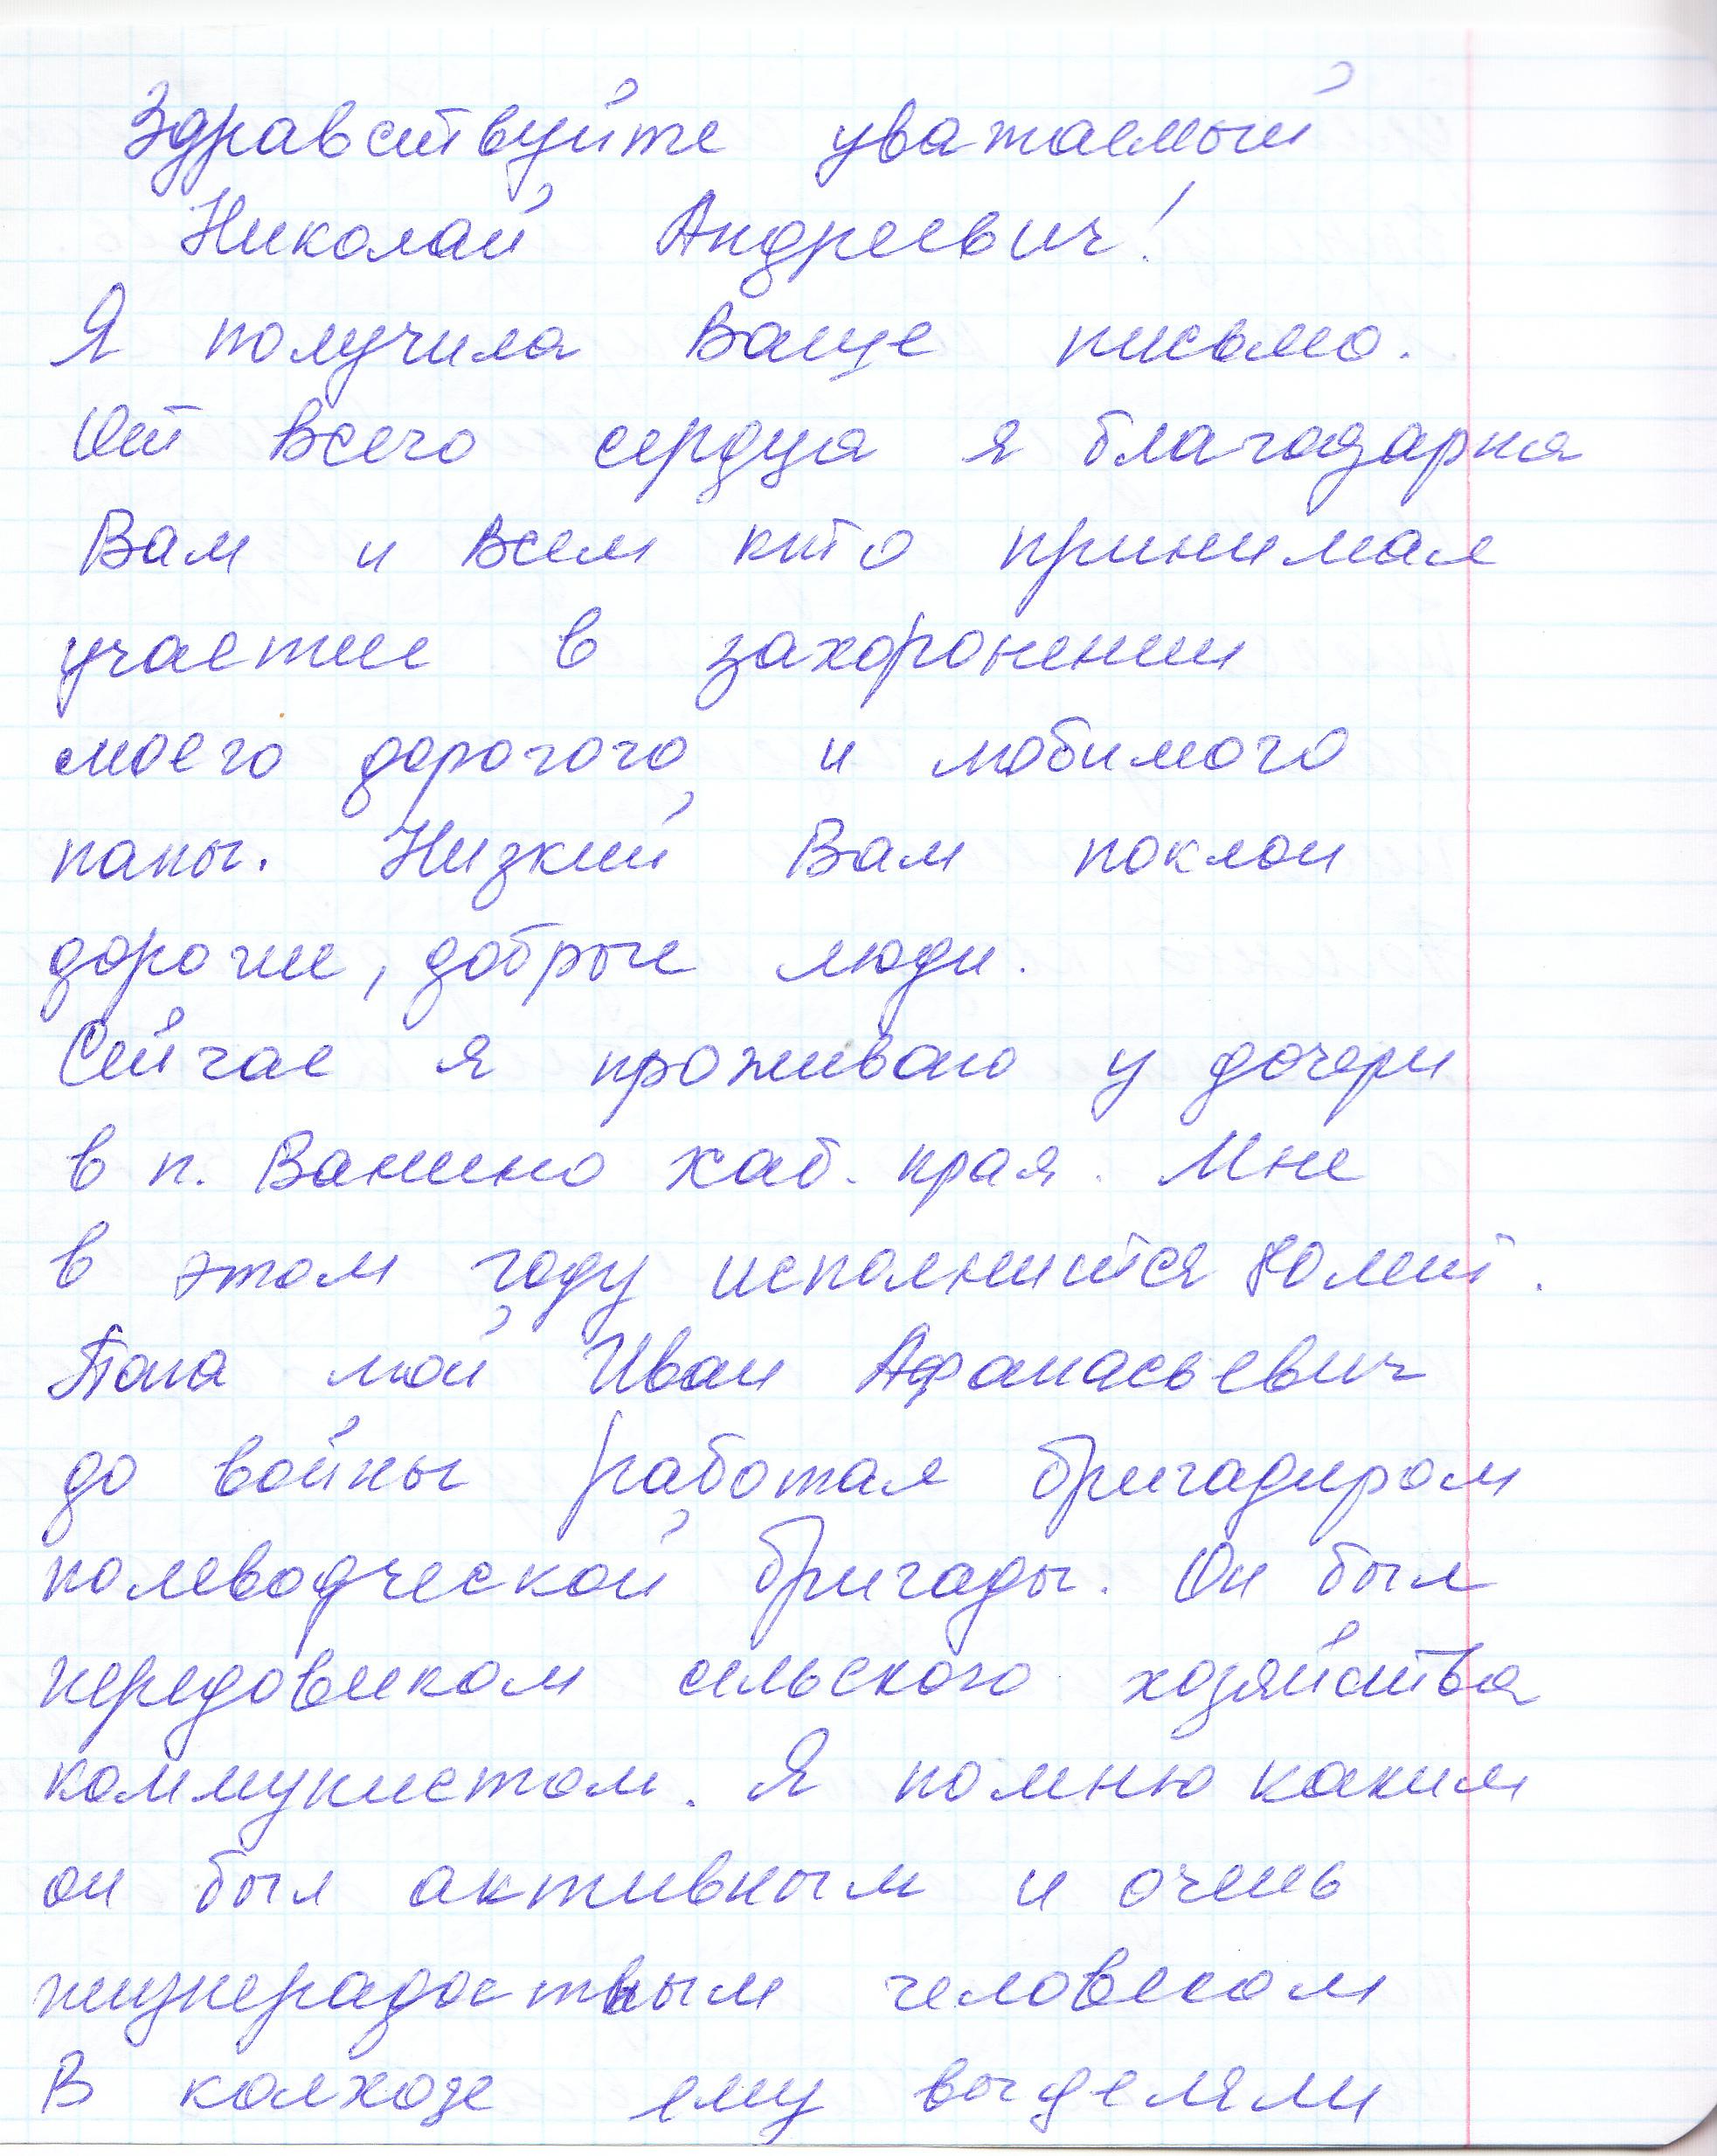 Здравствуйте уважаемый
Николай Андреевич!
Я получила Ваше письмо.
От всего сердца я благодарна
Вам и всем кто принимал
участие в захоронении
моего дорогого и любимого
папы. Низкий Вам поклон
дорогие, добрые люди.
Сейчас я проживаю у дочери
в п. Ванино хаб. края. Мне
в этом году исполнится 80 лет.
Папа мой Иван Афанасьевич
до войны работал бригадиром
полеводческой бригады. Он был
передовиком сельского хозяйства
коммунистом. Я помню каким
он был активным и очень
жизнерадостным человеком
В колхозе ему выделяли